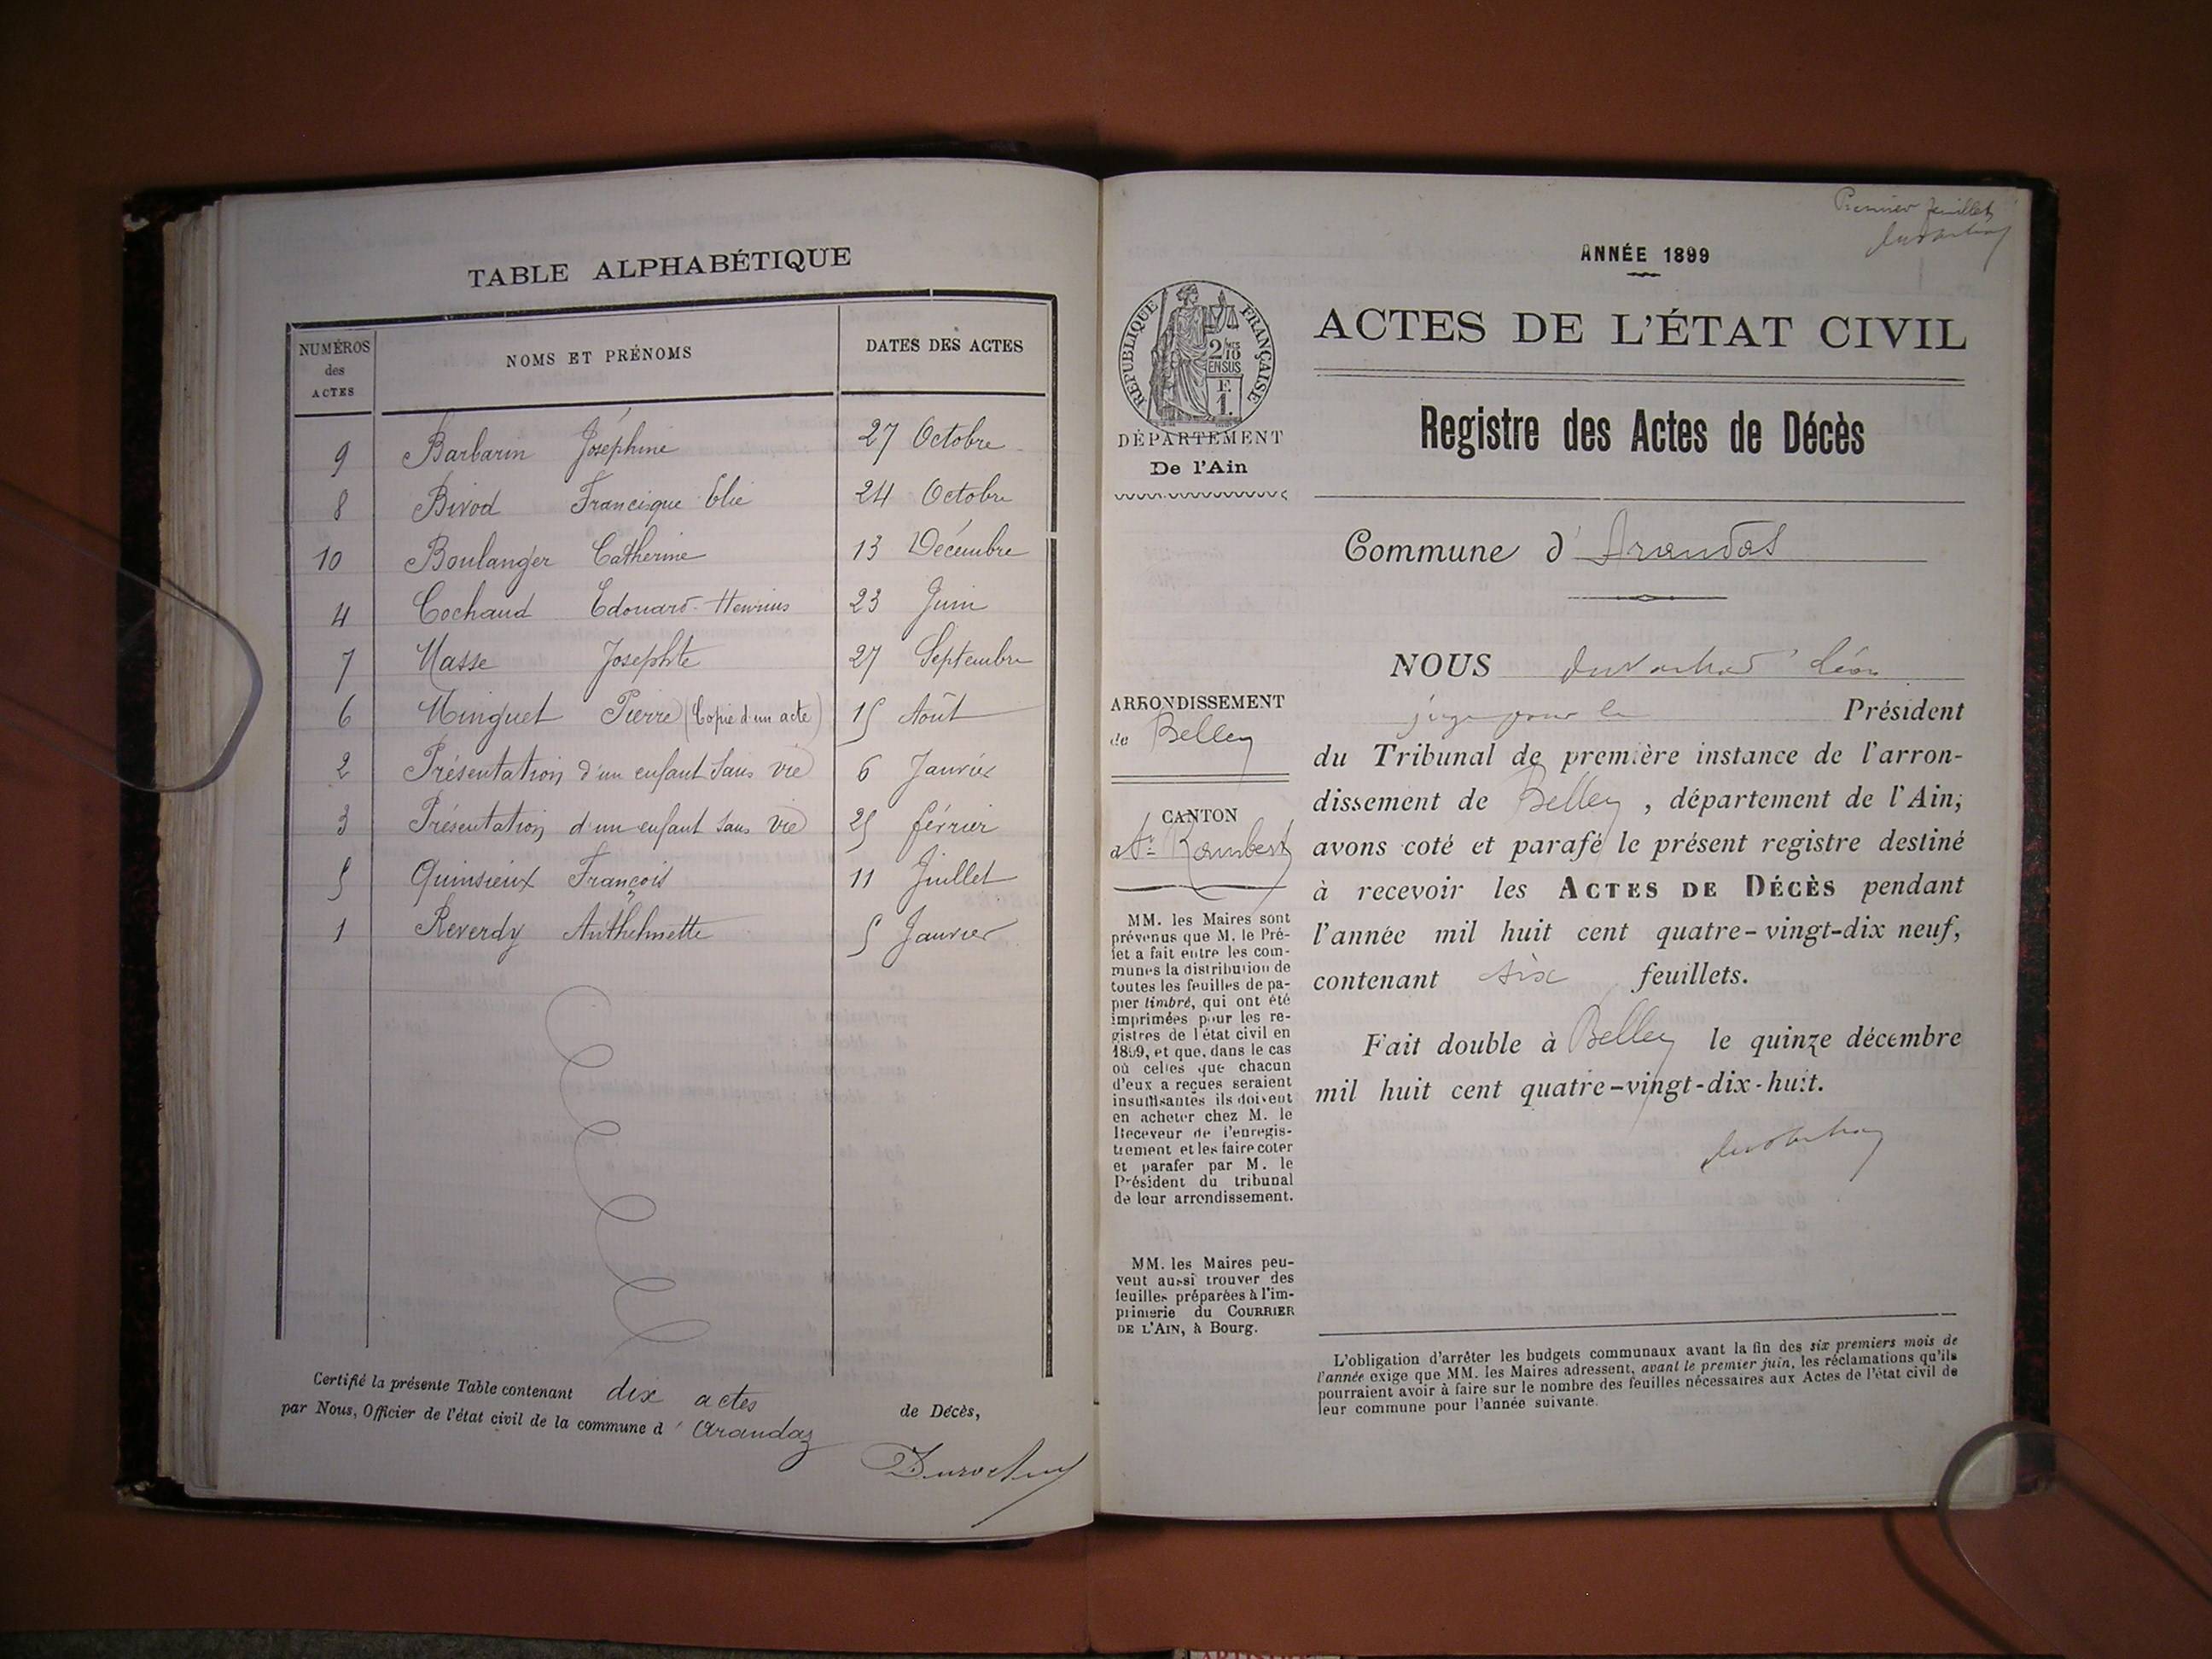 TABLE ALPHABÉTIQUE
NUMÉROS des ACTES
NOMS ET PRÉNOMS
DATES DES ACTES
9 Barbarin Joséphine 27 Octobre
8 Bivod Francisque Elie 24 Octobre
10 Boulanger Catherine 13 Décembre
4 Cochaud Edouard-Henrius 23 Juin
7 Masse Josephte 27 Septembre
6 Minguet Pierre (Copie d'un acte) 15 Août
2 Présentation d'un enfant sans vie 6 Janvier
3 Présentation d'un enfant sans vie 25 février
5 Quinsieux François 11 Juillet
1 Reverdy Anthelmette 5 Janvier
Certifié la présente Table contenant dix actes de Décès,
par Nous, Officier de l'état civil de la commune d' Arandaz
Premier feuillet
ANNÉE 1899
RÉPUBLIQUE FRANÇAISE
2/10 EN SUS
F.
1.
DÉPARTEMENT
De l'Ain
ARRONDISSEMENT
de Belley
CANTON
St. Rambert
MM. les Maires sont
prévenus que M. le Pré-
fet a fait entre les com-
munes la distribution de
toutes les feuilles de pa-
pier timbré, qui ont été
imprimées pour les re-
gistres de l'état civil en
1899, et que, dans le cas
où celles que chacun
d'eux a reçues seraient
insuffisantes ils doivent
en acheter chez M. le
Receveur de l'enregis-
trement et les faire coter
et parafer par M. le
Président du tribunal
de leur arrondissement.
MM. les Maires peu-
vent aussi trouver des
feuilles préparées à l'im-
primerie du COURRIER
DE L'AIN, à Bourg.
ACTES DE L'ÉTAT CIVIL
Registre des Actes de Décès
Commune d' Arandas
NOUS Léon
juge pour le Président
du Tribunal de première instance de l'arron-
dissement de Belley, département de l'Ain;
avons coté et parafé le présent registre destiné
à recevoir les ACTES DE DÉCÈS pendant
l'année mil huit cent quatre-vingt-dix neuf,
contenant six feuillets.
Fait double à Belley le quinze décembre
mil huit cent quatre-vingt-dix-huit.
L'obligation d'arrêter les budgets communaux avant la fin des six premiers mois de
l'année exige que MM. les Maires adressent, avant le premier juin, les réclamations qu'ils
pourraient avoir à faire sur le nombre des feuilles nécessaires aux Actes de l'état civil de
leur commune pour l'année suivante.